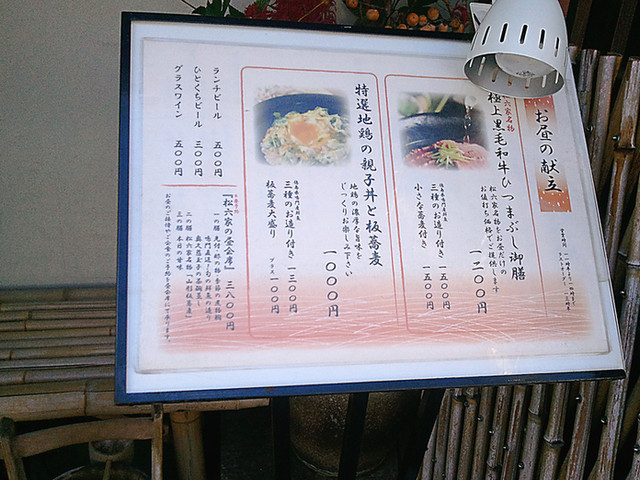 お昼の献立
松六家名物
極上黒毛和牛ひつまぶし御膳
松六家名物をお昼だけの
お値打ち価格でご提供します
一二〇〇円
三種のお造り付き 一五〇〇円
小さな蕎麦付き 一五〇〇円
特選地鶏の親子丼と板蕎麦
地鶏の濃厚な旨味を
じっくりお楽しみ下さい
一〇〇〇円
三種のお造り付き 一三〇〇円
板蕎麦大盛り プラス一〇〇円
ランチビール 五〇〇円
ひとくちビール 三〇〇円
グラスワイン 五〇〇円
『松六家の昼会席』 三八〇〇円
三の膳 本日の甘味